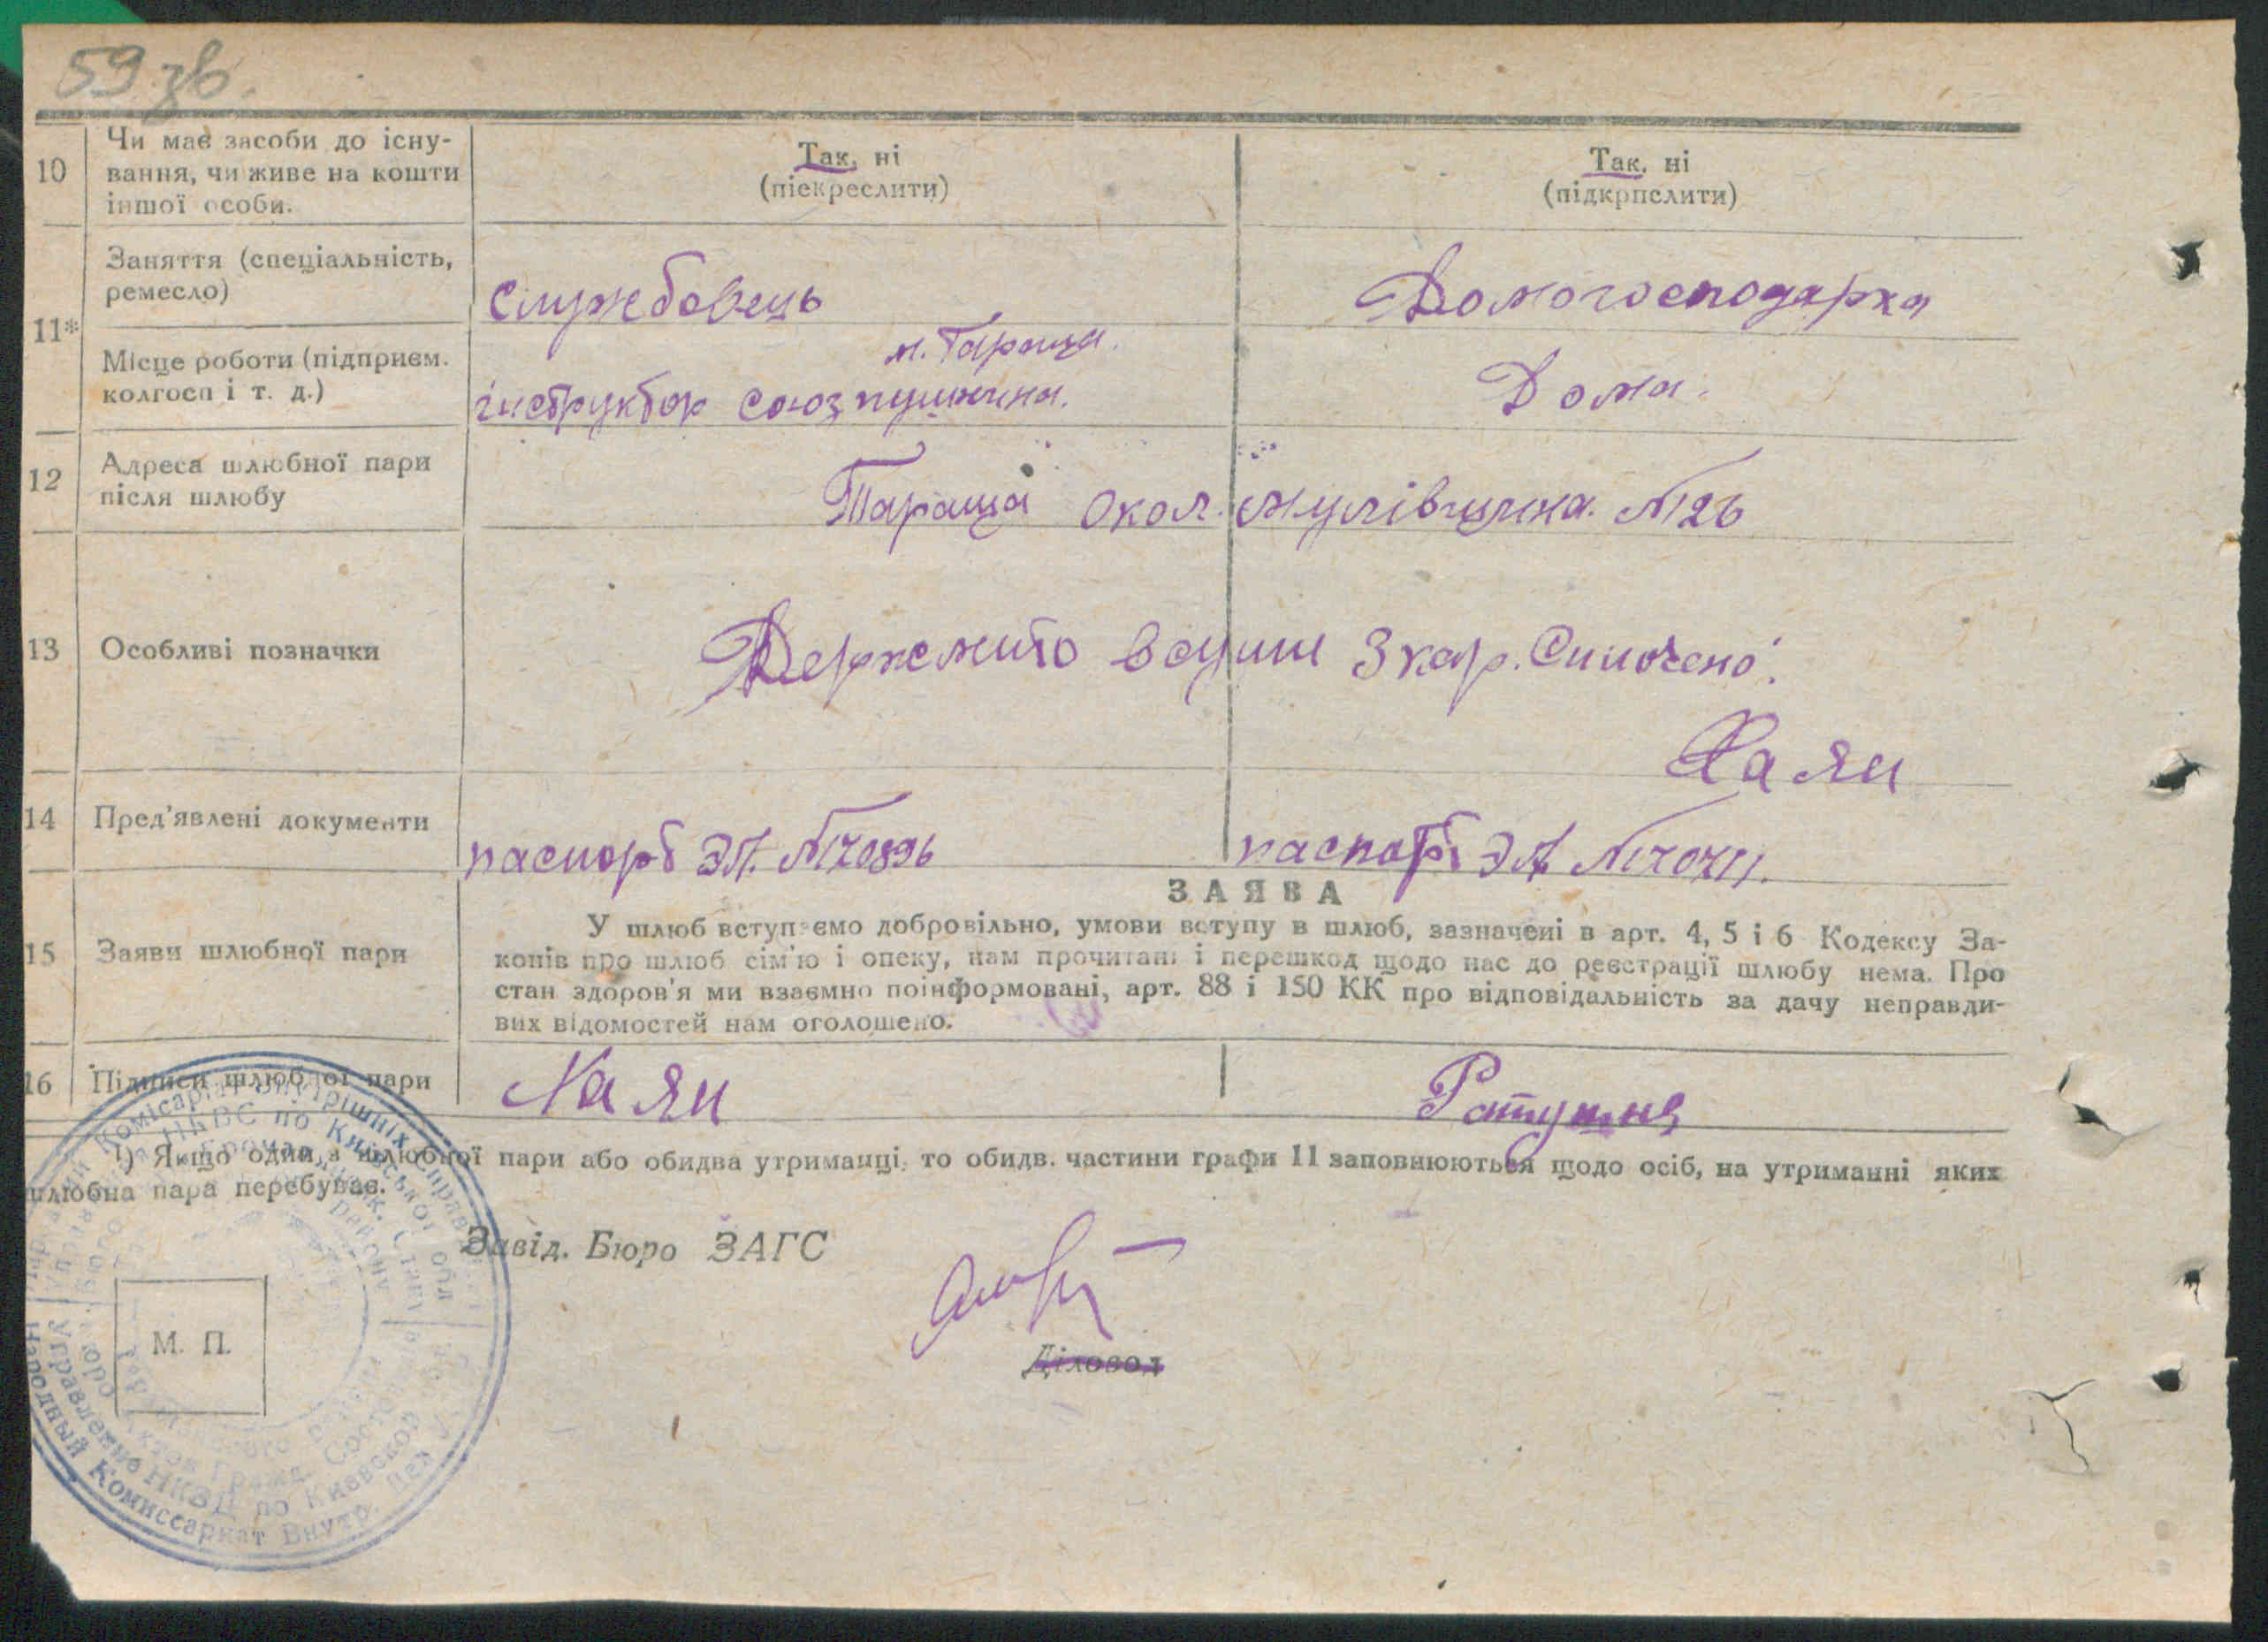 59 зв.
10
Чи має засоби до існу-
вання, чи живе на кошти
іншої особи.
Так, ні
(піекреслити)
Так, ні
(підкрпслити)
11*
Заняття (спеціальність,
ремесло)
Службовець
Домогосподарка
Місце роботи (підприєм.
колгосп і т. д.)
м. Тараща.
інструктор союзпушнина.
Дома.
12
Адреса шлюбної пари
після шлюбу
Тараща окол. №26
13
Особливі позначки
Держмито в сумі 3 кар.
14
Пред'явлені документи
паспорт ЭЛ. №70896
паспорт
ЗАЯВА
15
Заяви шлюбної пари
У шлюб вступаємо добровільно, умови вступу в шлюб, зазначені в арт. 4, 5 і 6 Кодексу За-
конів про шлюб сім'ю і опеку, нам прочитані і перешкод щодо нас до реєстрації шлюбу нема. Про
стан здоров'я ми взаємно поінформовані, арт. 88 і 150 КК про відповідальність за дачу неправди-
вих відомостей нам оголошено.
16
Підписи шлюбної пари
1) Якщо один з шлюбної пари або обидва утриманці, то обидв. частини графи 11 заповнюються щодо осіб, на утриманні яких
шлюбна пара перебуває.
Завід. Бюро ЗАГС
Діловод
М. П.
Народный Комиссариат Внутр.
Управление НКВД по Киевской